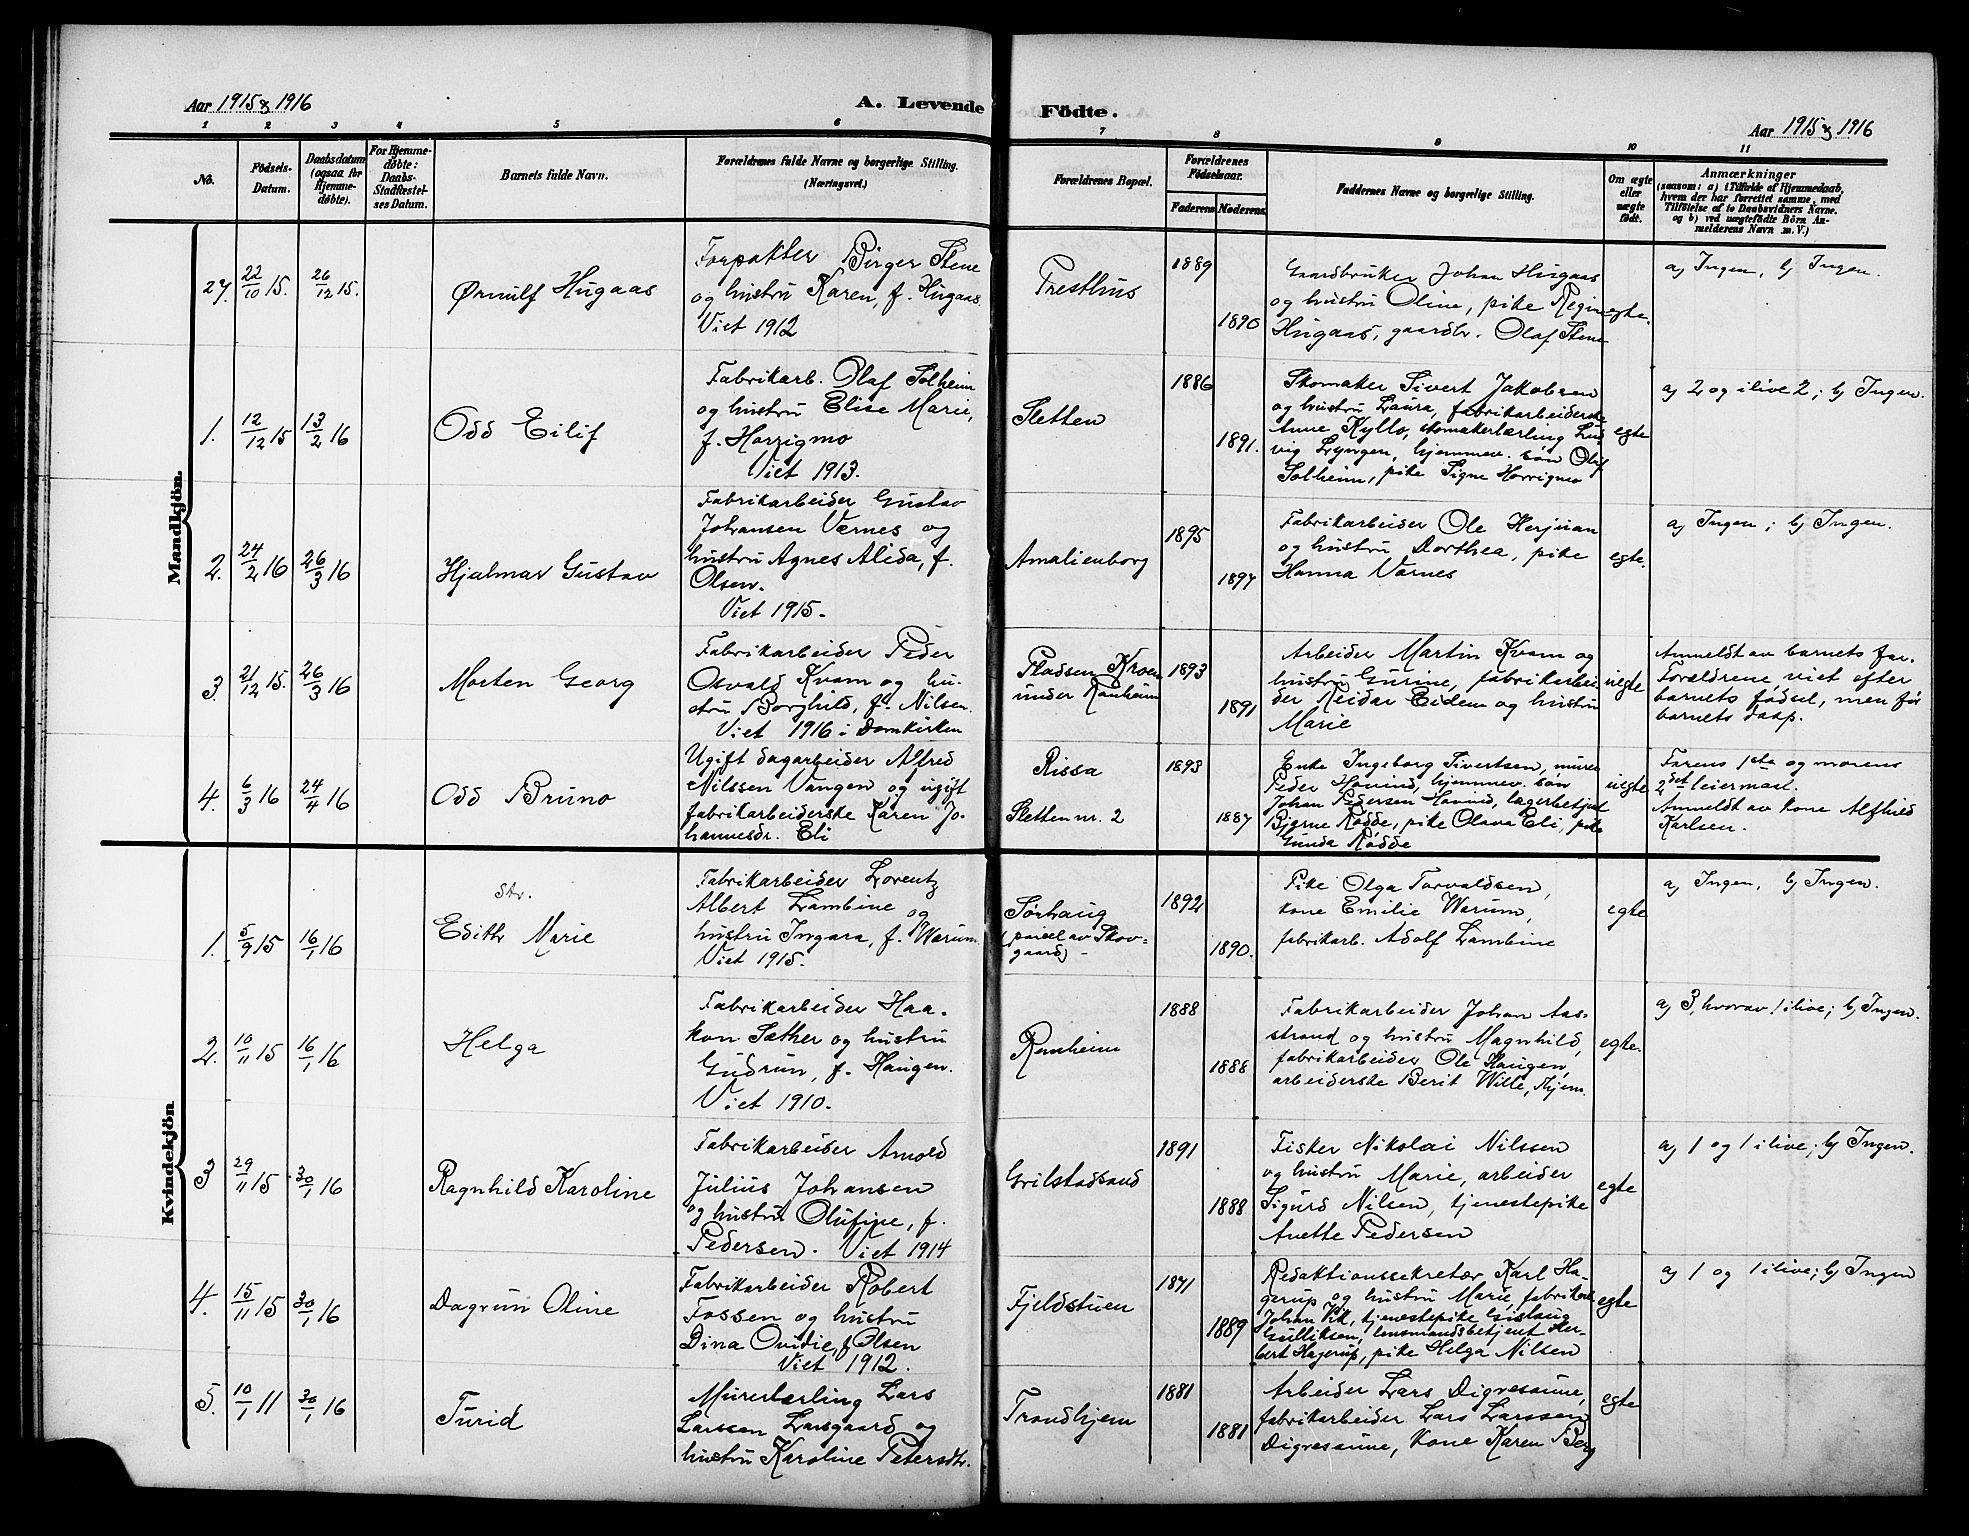 Aar 1915 & 1916
A. Levende
Födte.
Aar 1915 & 1916
1 2 3 4 5 6 7 8 9 10 11
No.
Födsels-
Datum.
Daabsdatum
(ogsaa for
Hjemme-
døbte).
For Hjemme-
døbte:
Daabs-
Stadfæstel-
ses Datum.
Barnets fulde Navn.
Forældrenes fulde Navne og borgerlige Stilling.
(Næringsvei.)
Forældrenes Bopæl.
Forældrenes
Födselsaar.
Faderens Moderens
Faddernes Navne og borgerlige Stilling.
Om ægte
eller
uægte
født.
Anmærkninger
(saasom: a) i Tilfælde af Hjemmedaab,
hvem der har forrettet samme, med
Tilføielse af to Daabsvidners Navne,
og b) ved uægtefødte Börn An-
melderens Navn m. V.)
Mandkjön.
27. 22/10 15. 26/12 15.
Ørnulf Hugaas
Forpakter Birger Stene
og hustru Karen, f. Hugaas
Viet 1912
Presthus
1889
1890
Gaardbruker Johan Hugaas
og hustru Oline, pike Regine
Hugaas, gaardbr. Olaf Stene
egte.
a) Ingen, b) Ingen.
1. 12/12 15 13/2 16
Odd Eilif
Fabrikarb. Olaf Solheim
og hustru Elise Marie,
f. Horrigmo
Viet 1913.
Sletten
1886
1891.
Skomaker Sivert Jakobsen
og hustru Laura, fabrikarbeiderske
Anne Kyllo, skomakerlærling Lud
vig Lyngen, hjemmev. søn Olaf
Solheim, pike Signe Horrigmo
egte
a) 2 og i live 2; b) Ingen.
2. 24/2 16 26/3 16
Hjalmar Gustav
Fabrikarbeider Gustav
Johansen Værnes og
hustru Agnes Alida, f.
Olsen.
Viet 1915.
Amalienborg
1895
1897
Fabrikarbeider Ole Herjuan
og hustru Dorthea, pike
Hanna Værnes
egte.
a) Ingen; b) Ingen.
3. 21/12 15. 26/3 16
Morten Georg
Fabrikarbeider Peder
Osvald Kvam og hu-
stru Borghild, f. Nilsen.
Viet 1916 i Domkirken
Pladsen Kroen
under Ranheim
1893
1891
Arbeider Martin Kvam og
hustru Gurine, fabrikarbei
der Reidar Eidem og hustru
Marie
uegte
Anmeldt av barnets far.
Forældrene viet efter
barnets fødsel, men før
barnets daap.
4. 6/3 16 24/4 16
Odd Bruno
Ugift dagarbeider Alfred
Nilssen Vangen og ugift
fabrikarbeiderske Karen Jo-
hannesdr. Eli
Rissa
Sletten nr. 2
1893
1887
Enke Ingeborg Sivertsen, murer
Peder Hovind, hjemmev. søn
Johan Pedersen Hovind, lagerbetjent
Bjarne Rødde, pike Olava Eli, pike
Gunda Rødde
uegte
Farens 1ste og morens
2det leiermaal.
Anmeldt av kone Alfhild
Karlsen.
Kvindekjön
1. 5/9 15 16/1 16
Str.
Edith Marie
Fabrikarbeider Lorentz
Albert Lambine og
hustru Ingara, f. Warum.
Viet 1915.
Sørhaug
(parcel av Skov-
gaard)
1892
1890.
Pike Olga Torvaldsen,
kone Emilie Warum,
fabrikarb. Adolf Lambine
egte
a) Ingen, b) Ingen.
2. 10/11 15 16/1 16
Helga
Fabrikarbeider Haa-
kon Sæther og hustru
Gudrun, f. Haugen.
Viet 1910.
Ranheim
1888
1888
Fabrikarbeider Johan Aas-
strand og hustru Magnhild,
fabrikarbeider Ole Haugen,
arbeiderske Berit Wille, Hjem.
egte.
a) 3, hvorav 1 i live; b) Ingen.
3 29/11 15 30/1 16
Ragnhild Karoline
Fabrikarbeider Arnold
Julius Johansen
og hustru Olufine, f.
Pedersen. Viet 1914
Grilstadsand
1891
1888
Fisker Nikolai Nilssen
og hustru Marie, arbeider
Sigurd Nilsen, tjenestepike
Anette Pedersen
egte
a) 1 og 1 i live; b) Ingen.
4. 15/11 15 30/1 16
Dagrun Oline
Fabrikarbeider Robert
Fossen og hustru
Dina Ovidie, f. Olsen
Viet 1912.
Fjeldstuen
1871
1889
Redaktionssekretær Karl Ha-
gerup og hustru Marie, fabrikarb.
Johan Vik, tjenestepike Gislaug
Gulliksen, lensmandsbetjent Her-
bert Hagerup, pike Helga Nilsen
egte
a) 1 og 1 i live; b) Ingen
5. 10/1 11 30/1 16
Turid
Murerlærling Lars
Larssen Larsgaard og
hustru Karoline Petersdtr.
Trondhjem
1881
1881
Arbeider Lars Digresaune,
fabrikarbeider Lars Larssen
Digresaune, Kone Karen Berg
egte